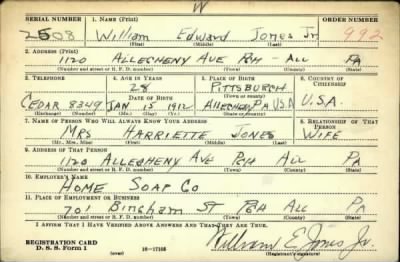 W
SERIAL NUMBER 1. Name (Print) ORDER NUMBER
2508 William Edward Jones Jr. 992
(First) (Middle) (Last)
2. Address (Print)
1120 Allegheny Ave Pgh - All Pa
(Number and street or R. F. D. number) (Town) (County) (State)
3. Telephone 4. Age in Years 5. Place of Birth 6. Country of Citizenship
28 Pittsburgh
Date of Birth (Town or county)
Cedar 8349 Jan 15 1912 Allegheny Pa USA U.S.A
(Exchange) (Number) (Mo.) (Day) (Yr.) (State or country)
7. Name of Person Who Will Always Know Your Address 8. Relationship of That Person
Mrs Harriette Jones Wife
(Mr., Mrs., Miss) (First) (Middle) (Last)
9. Address of That Person
1120 Allegheny Ave Pgh All Pa
(Number and street or R. F. D. number) (Town) (County) (State)
10. Employer's Name
Home Soap Co
11. Place of Employment or Business
701 Bingham St Pgh All Pa
(Number and street or R. F. D. number) (Town) (County) (State)
I Affirm That I Have Verified Above Answers and That They Are True.
REGISTRATION CARD
D. S. S. Form 1 16-17105 William E. Jones Jr.
(Registrant's signature)